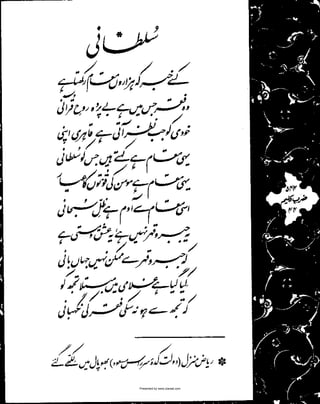 سُلطانی *
کسے خبر کہ ہزاروں مقام رکھتا ہے
وہ فقر جس میں ہے بے پردہ روحِ قرآنی
خودی کو جب نظر آتی ہے قاہری اپنی
یہی مقام ہے کہتے ہیں جس کو سُلطانی
یہی مقام ہے مومن کی قوّتوں کا عیار
اسی مقام سے آدم ہے ظِلِّ سُبحانی
یہ جبر و قہر نہیں ہے، یہ عشق و مستی ہے
کہ جبر و قہر سے ممکن نہیں جہاں بانی
کیا گیا ہے غلامی میں مبتلا تجھ کو
کہ تجھ سے ہو نہ سکی فقر کی نگہبانی
* ریاض منزل (دولت کدۂ سر راس مسعود) بھوپال میں لکھے گئے
ضربِ کلیم
Presented by www.ziaraat.com